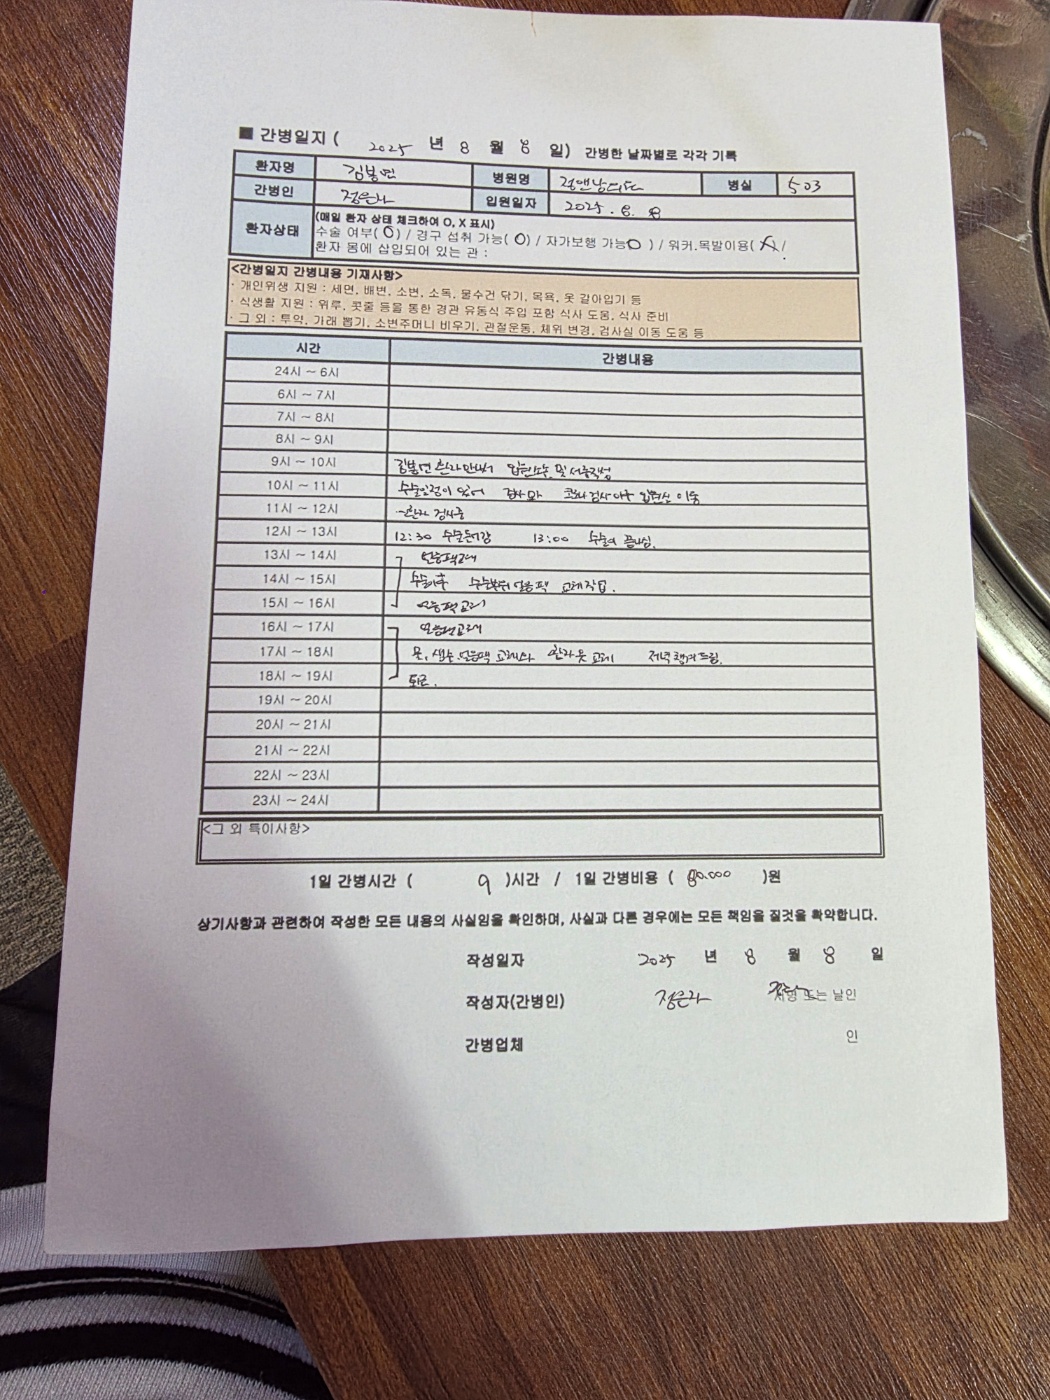 ■ 간병일지 ( 2025 년 8 월 8 일) 간병한 날짜별로 각각 기록
환자명 김봉연 병원명 병실 503
간병인 정은자 입원일자 2025. 8. 8
환자상태 (매일 환자 상태 체크하여 O, X 표시)
수술 여부( O ) / 경구 섭취 가능( O ) / 자가보행 가능O ) / 워커.목발이용( X /
환자 몸에 삽입되어 있는 관 :
<간병일지 간병내용 기재사항>
· 개인위생 지원 : 세면, 배변, 소변, 소독, 물수건 닦기, 목욕, 옷 갈아입기 등
· 식생활 지원 : 위루, 콧줄 등을 통한 경관 유동식 주입 포함 식사 도움, 식사 준비
· 그 외 : 투약, 가래 뽑기, 소변주머니 비우기, 관절운동, 체위 변경, 검사실 이동 도움 등
시간 간병내용
24시 ~ 6시
6시 ~ 7시
7시 ~ 8시
8시 ~ 9시
9시 ~ 10시 김봉연 환자 만나서 입원소속 및 서류작성
10시 ~ 11시 수술일정이 있어 검사 이동
11시 ~ 12시 환자 검사중
12시 ~ 13시 12:30 수술들어감 13:00 수술이 끝남.
13시 ~ 14시 얼음팩교체
14시 ~ 15시 수술이후 수술부위 얼음팩 교체작업.
15시 ~ 16시 얼음팩교체
16시 ~ 17시 얼음팩교체
17시 ~ 18시 얼음팩 교체와 환자옷 교체 저녁 챙겨드림.
18시 ~ 19시 퇴근.
19시 ~ 20시
20시 ~ 21시
21시 ~ 22시
22시 ~ 23시
23시 ~ 24시
<그 외 특이사항>
1일 간병시간 ( 9 )시간 / 1일 간병비용 ( 80.000 )원
상기사항과 관련하여 작성한 모든 내용의 사실임을 확인하며, 사실과 다른 경우에는 모든 책임을 질것을 확약합니다.
작성일자 2025 년 8 월 8 일
작성자(간병인) 정은자 서명 또는 날인
간병업체 인